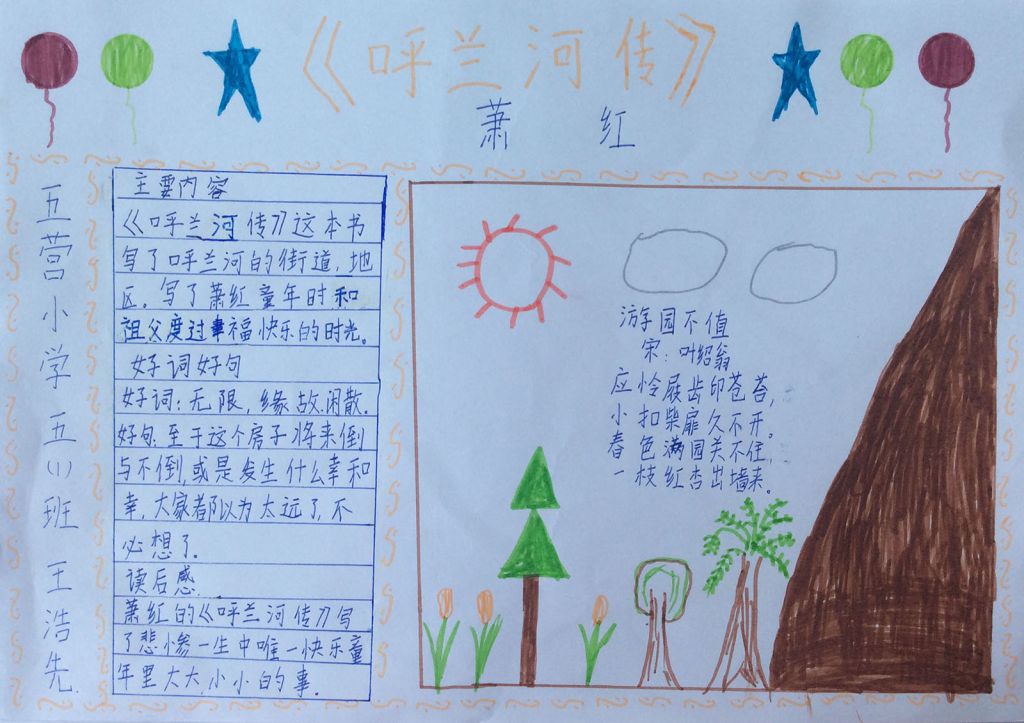 《呼兰河传》
萧红
五营小学五(1)班 王浩先
主要内容
《呼兰河传》这本书
写了呼兰河的街道,地
区。写了萧红童年时和
祖父度过幸福快乐的时光。
好词好句
好词:无限,缘故.闲散.
好句:至于这个房子将来倒
与不倒,或是发生什么幸和
幸,大家都以为太远了,不
必想了.
读后感.
萧红的《呼兰河传》写
了悲惨一生中唯一快乐童
年里大大,小小的事.
游园不值
宋:叶绍翁
应怜屐齿印苍苔,
小扣柴扉久不开。
春色满园关不住,
一枝红杏出墙来。